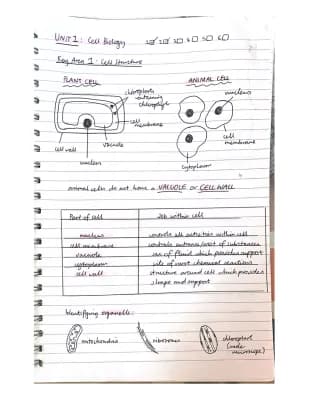 UNIT 1: Cell Biology 1 2 3 4 5 6
Key Area 1: Cell Structure
PLANT CELL
ANIMAL CELL
chloroplasts
containing
chlorophyll
nucleus
cell
membrane
vacuole
cell wall
nucleus
cell
membrane
cytoplasm
animal cells do not have a VACUOLE or CELL WALL
Part of cell Job within cell
nucleus controls all activities within cell
cell membrane controls entrance/exit of substances
vacuole sac of fluid which provides support
cytoplasm site of most chemical reactions
cell wall structure around cell which provides
shape and support
Identifying organelles:
mitochondria
ribosomes
chloroplast
(under
microscope)